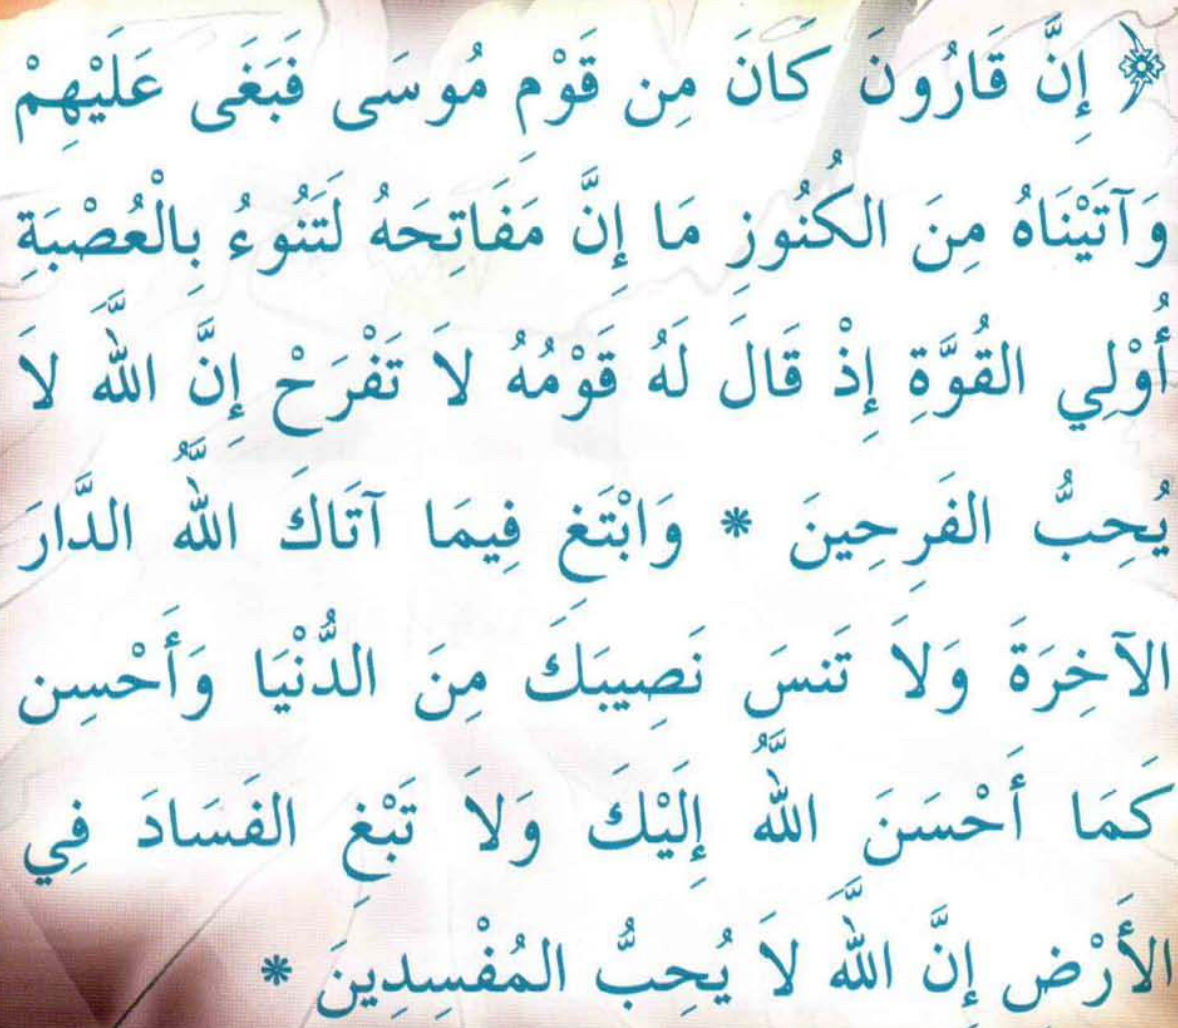 ﴿ إِنَّ قَارُونَ كَانَ مِن قَوْمِ مُوسَى فَبَغَى عَلَيْهِمْ
وَآتَيْنَاهُ مِنَ الكُنُوزِ مَا إِنَّ مَفَاتِحَهُ لَتَنُوءُ بِالْعُصْبَةِ
أُوْلِي القُوَّةِ إِذْ قَالَ لَهُ قَوْمُهُ لاَ تَفْرَحْ إِنَّ اللَّهَ لاَ
يُحِبُّ الفَرِحِينَ * وَابْتَغِ فِيمَا آتَاكَ اللَّهُ الدَّارَ
الآخِرَةَ وَلاَ تَنسَ نَصِيبَكَ مِنَ الدُّنْيَا وَأَحْسِن
كَمَا أَحْسَنَ اللَّهُ إِلَيْكَ وَلاَ تَبْغِ الفَسَادَ فِي
الأَرْضِ إِنَّ اللَّهَ لاَ يُحِبُّ المُفْسِدِينَ *